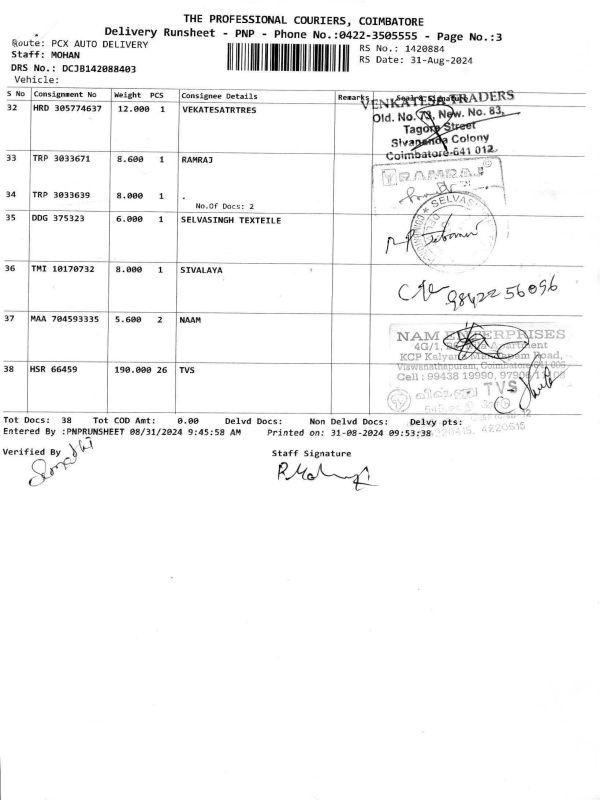 THE PROFESSIONAL COURIERS, COIMBATORE
Delivery Runsheet - PNP - Phone No.:0422-3505555 - Page No.:3
Route: PCX AUTO DELIVERY
RS No.: 1420884
Staff: MOHAN
RS Date: 31-Aug-2024
DRS No.: DCJB142088403
Vehicle:
S No Consignment No Weight PCS Consignee Details Remarks Seal & Signature
32 HRD 305774637 12.000 1 VEKATESATRTRES
VENKATESA TRADERS
Old. No. 73, New. No. 83,
Tagore Street
Sivananda Colony
Coimbatore-641 012.
33 TRP 3033671 8.600 1 RAMRAJ
RAMRAJ
34 TRP 3033639 8.000 1 .
No.Of Docs: 2
SELVAS
35 DDG 375323 6.000 1 SELVASINGH TEXTEILE
36 TMI 10170732 8.000 1 SIVALAYA
98422 56096
37 MAA 704593335 5.600 2 NAAM
NAM ENTERPRISES
4G/1, Apartment
KCP Kalyana Mandapam Road,
Viswanathapuram, Coimbatore
Cell : 99438 19990,
38 HSR 66459 190.000 26 TVS
TVS
Tot Docs: 38 Tot COD Amt: 0.00 Delvd Docs: Non Delvd Docs: Delvy pts:
Entered By :PNPRUNSHEET 08/31/2024 9:45:58 AM Printed on: 31-08-2024 09:53:38
4220615
Verified By
Staff Signature